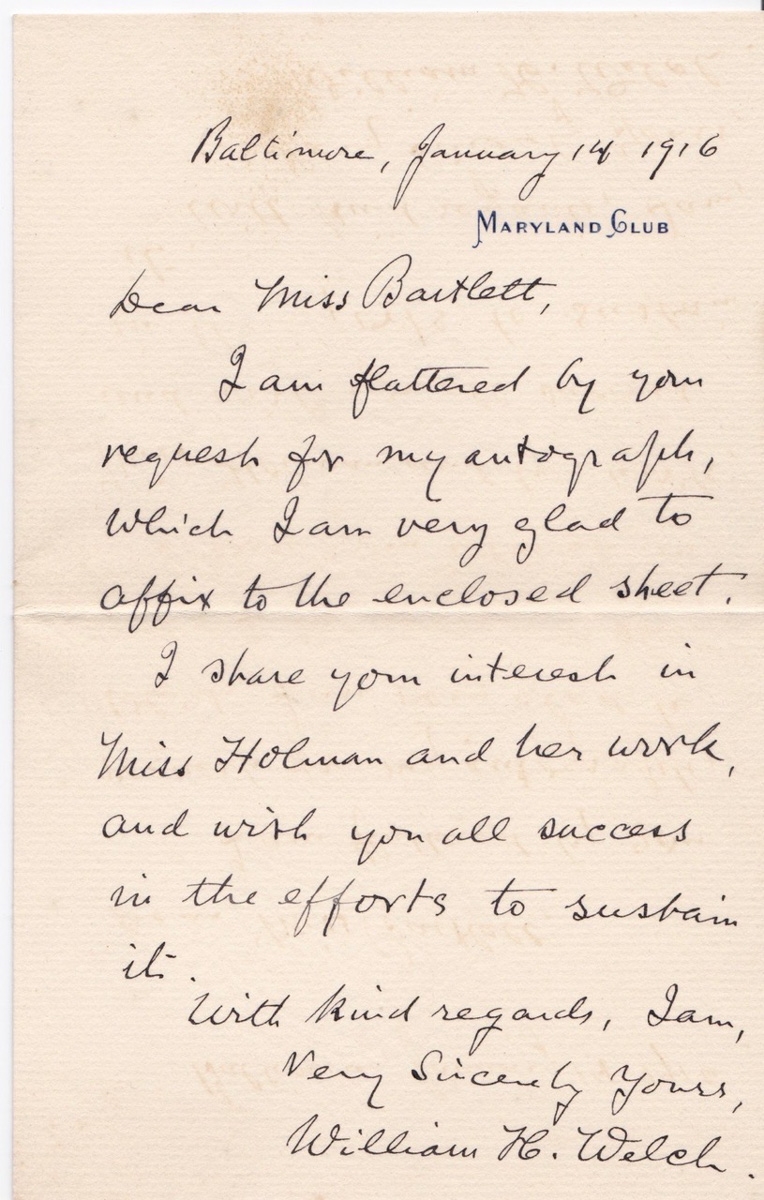 Baltimore, January 14 1916
MARYLAND CLUB
Dear Miss Bartlett,
I am flattered by your
request for my autograph,
which I am very glad to
affix to the enclosed sheet.
I share your interest in
Miss Holman and her work,
and wish you all success
in the efforts to sustain
it.
With kind regards, I am,
Very Sincerely Yours,
William H. Welch.